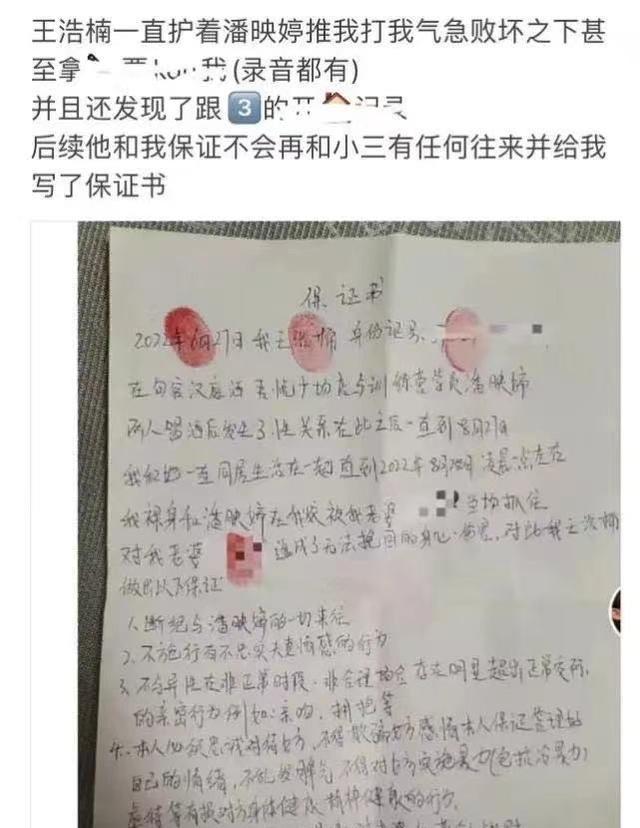 王浩楠一直护着潘映婷推我打我气急败坏之下甚
至拿 我(录音都有)
并且还发现了跟3的开 记录
后续他和我保证不会再和小三有任何往来并给我
写了保证书
保证书
2022年6月27日 我王浩楠 身份证号
在句容汉庭酒 吾悦广场店与训练营学员潘映婷
两人喝酒后发生了性关系在此之后一直到8月27日
我和她一直同居生活在一起直到2022年8月28日凌晨一点左右
我裸身和潘映婷在我家被我老婆 当场抓住
对我老婆 造成了无法挽回的身心伤害,对此我王浩楠
做出以下保证
1、断绝与潘映婷的一切来往
2、不施行有不忠实夫妻情感的行为
3、不与异性在非正常时段、非合理场合存在明显超出正常交际
的亲密行为例如:亲吻、拥抱等
4、本人必须忠诚对待女方,不得欺骗女方感情本人保证管理好
自己的情绪,不乱发脾气不得对女方实施暴力(包括冷暴力)
虐待等有损对方身体健康精神健康的行为